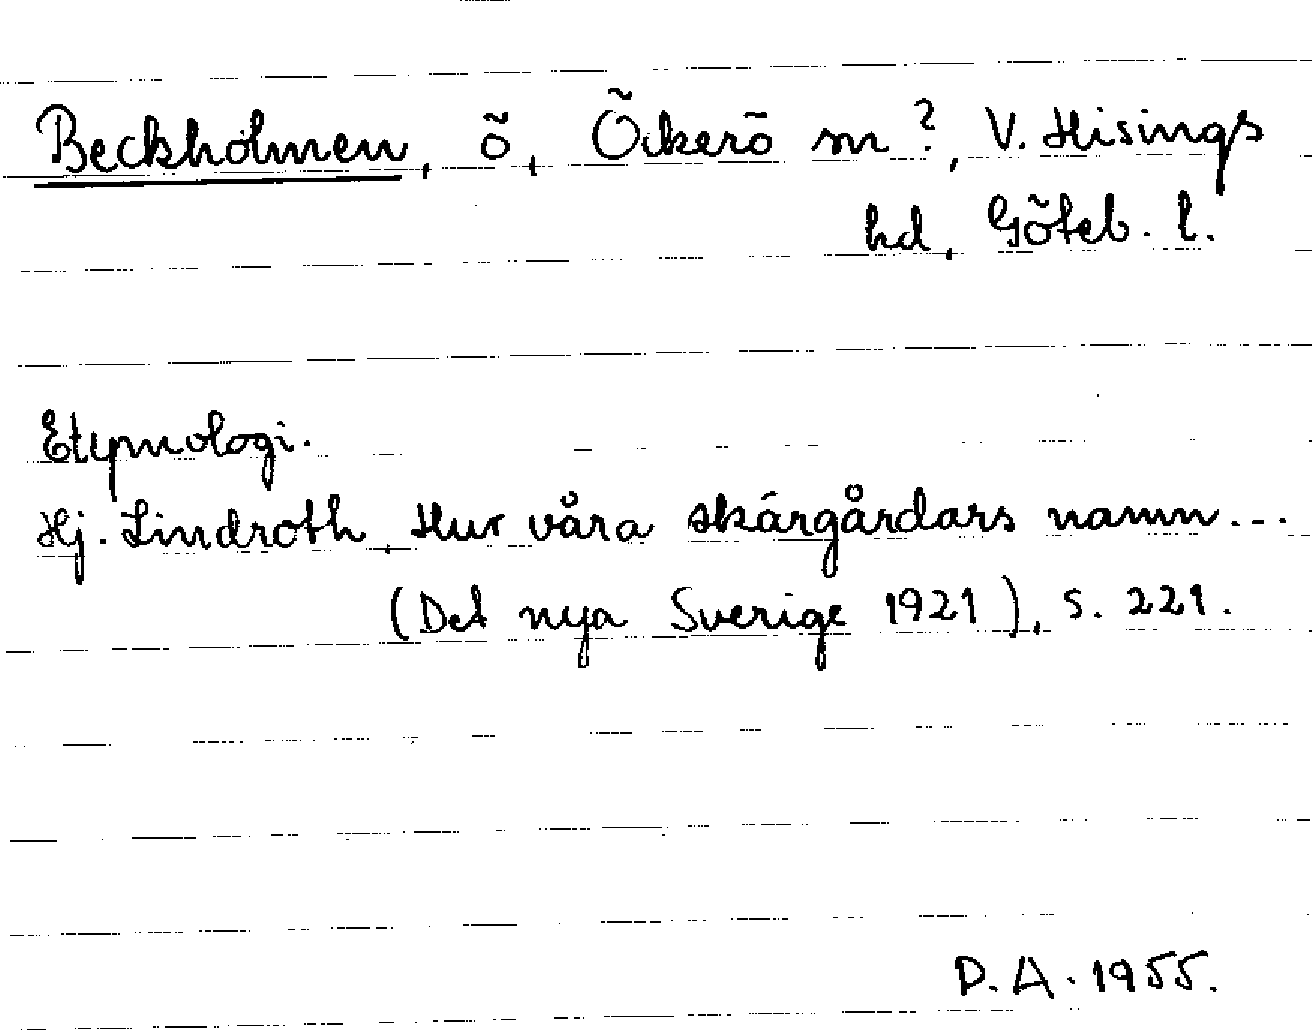 Beckholmen, ö, Öckerö sn?, V. Hisings
hd, Göteb. l.
Etymologi.
Hj. Lindroth, Hur våra skärgårdars namn...
(Det nya Sverige 1921), s. 221.
D. A. 1955.